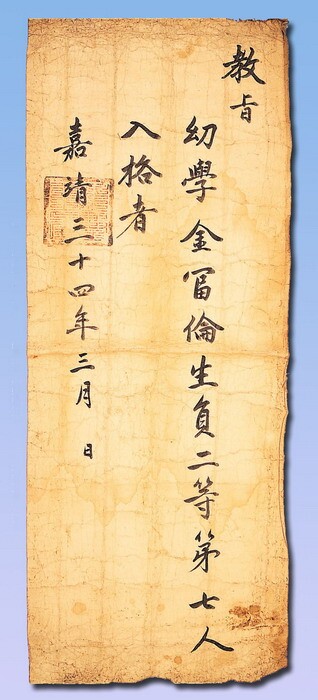 教旨
幼學金富倫生員二等第七人
入格者
嘉靖三十四年三月 日